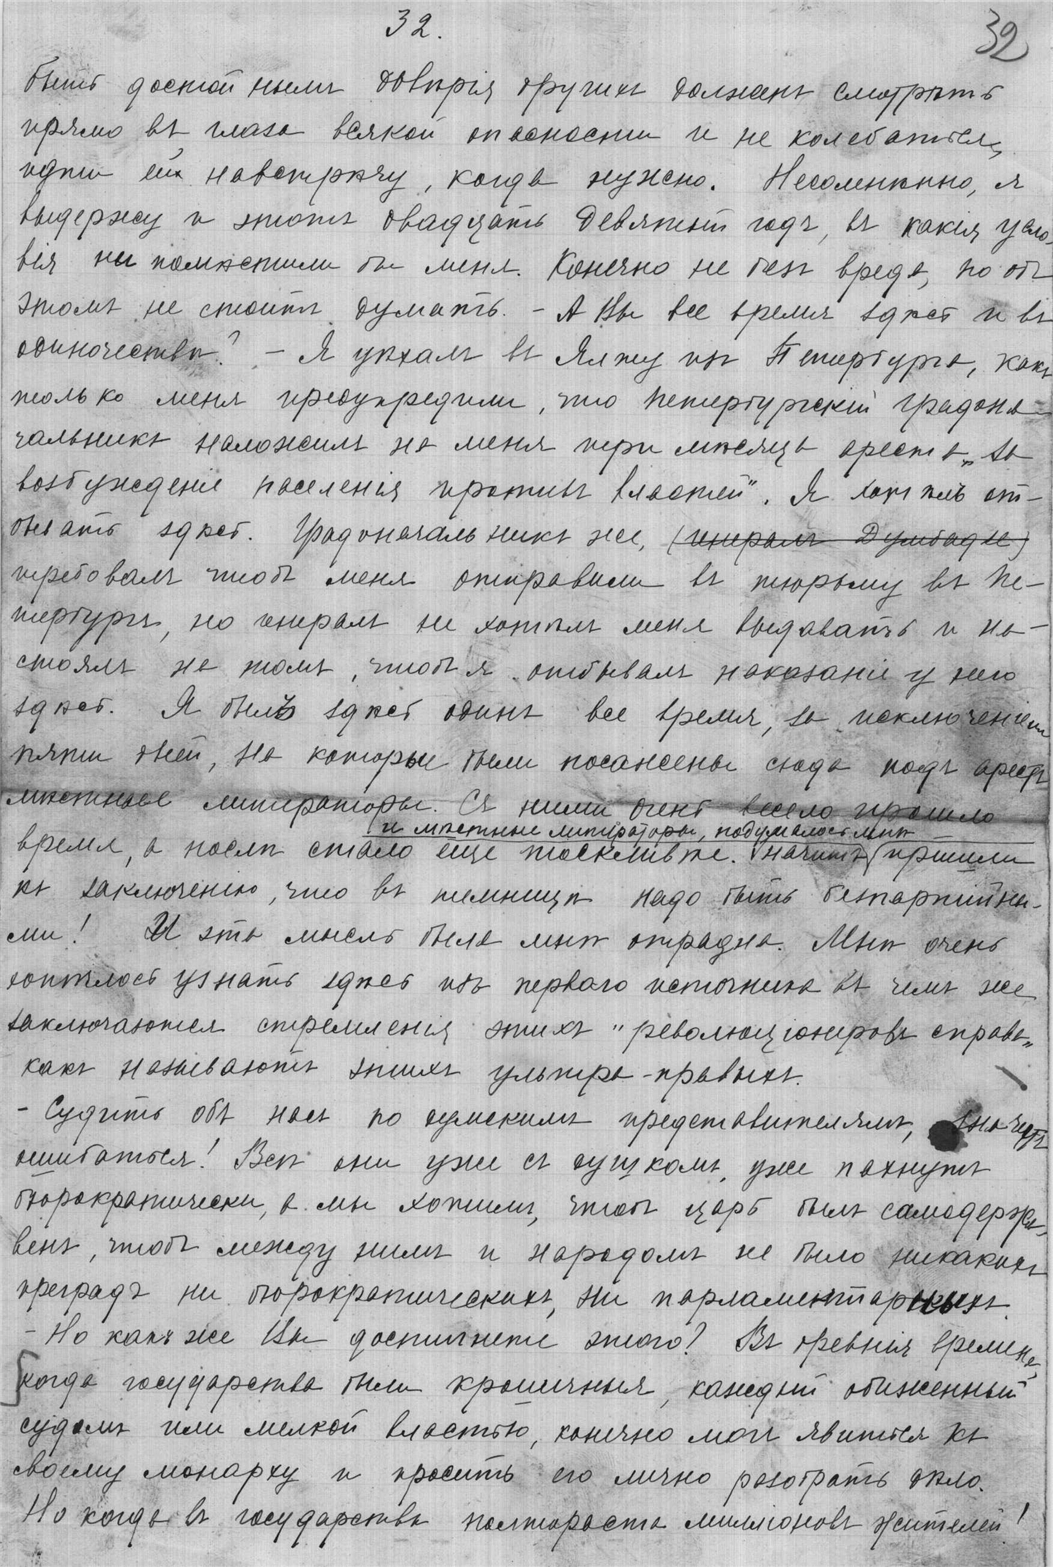 32.
32
быть достойнымъ довѣрія другихъ долженъ смотрѣть
прямо въ глаза всякой опасности и не колебаться,
идти ей навстрѣчу, когда нужно. Несомнѣнно, я
выдержу и этотъ двадцать девятый годъ, въ какія усло-
вія ни помѣстили бы меня. Конечно не безъ вреда, но объ
этомъ не стоитъ думать. - А Вы все время здѣсь и въ
одиночествѣ? - Я уѣхалъ въ Ялту изъ Петербурга, какъ
только меня предупредили, что петербургскій градона-
чальникъ наложилъ на меня три мѣсяца ареста „за
возбужденіе населенія противъ властей". Я хотѣлъ от-
бывать здѣсь. Градоначальникъ же, (генералъ Думбадзе)
требовалъ чтобъ меня отправили въ тюрьму въ Пе-
тербургъ, но генералъ не хотѣлъ меня выдавать и на-
стоялъ на томъ, чтобъ я отбывалъ наказаніе у него
здѣсь. Я былъ здѣсь одинъ все время, за исключеніемъ
пяти дней, на которые были посажены сюда подъ арестъ
мѣстные литераторы. Съ ними очень весело прошло
и мѣстные литераторы, подумалось мнѣ
время, а послѣ стало еще тоскливѣе. Значитъ пришли
къ заключенію, что въ темницѣ надо быть безпартійны-
ми! И эта мысль была мнѣ отрадна. Мнѣ очень
хотѣлось узнать здѣсь изъ перваго источника въ чемъ же
заключаются стремленія этихъ "революціонеровъ справа"
какъ называютъ этихъ ультра-правыхъ.
- Судить объ насъ по думскимъ представителямъ, значитъ
ошибаться! Всѣ они уже съ душкомъ, уже пахнутъ
бюрократически, а мы хотимъ, чтобъ царь былъ самодержа-
венъ, чтобъ между нимъ и народомъ не было никакихъ
преградъ ни бюрократическихъ, ни парламентарныхъ.
- Но какъ же Вы достигнете этого? Въ древнія времена,
когда государства были крошечныя, каждый обиженный
судомъ или мелкой властью, конечно могъ явиться къ
своему монарху и просить его лично разобрать дѣло.
Но когда въ государствѣ полтораста милліоновъ жителей!